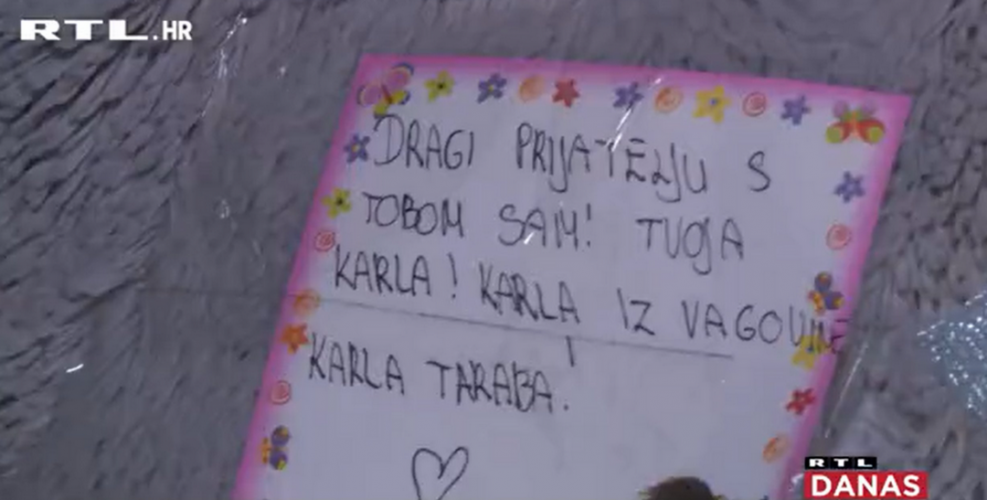 RTL.HR
DRAGI PRIJATELJU S
TOBOM SAM! TVOJA
KARLA! KARLA IZ VAGOVINE
KARLA TARABA.
RTL
DANAS